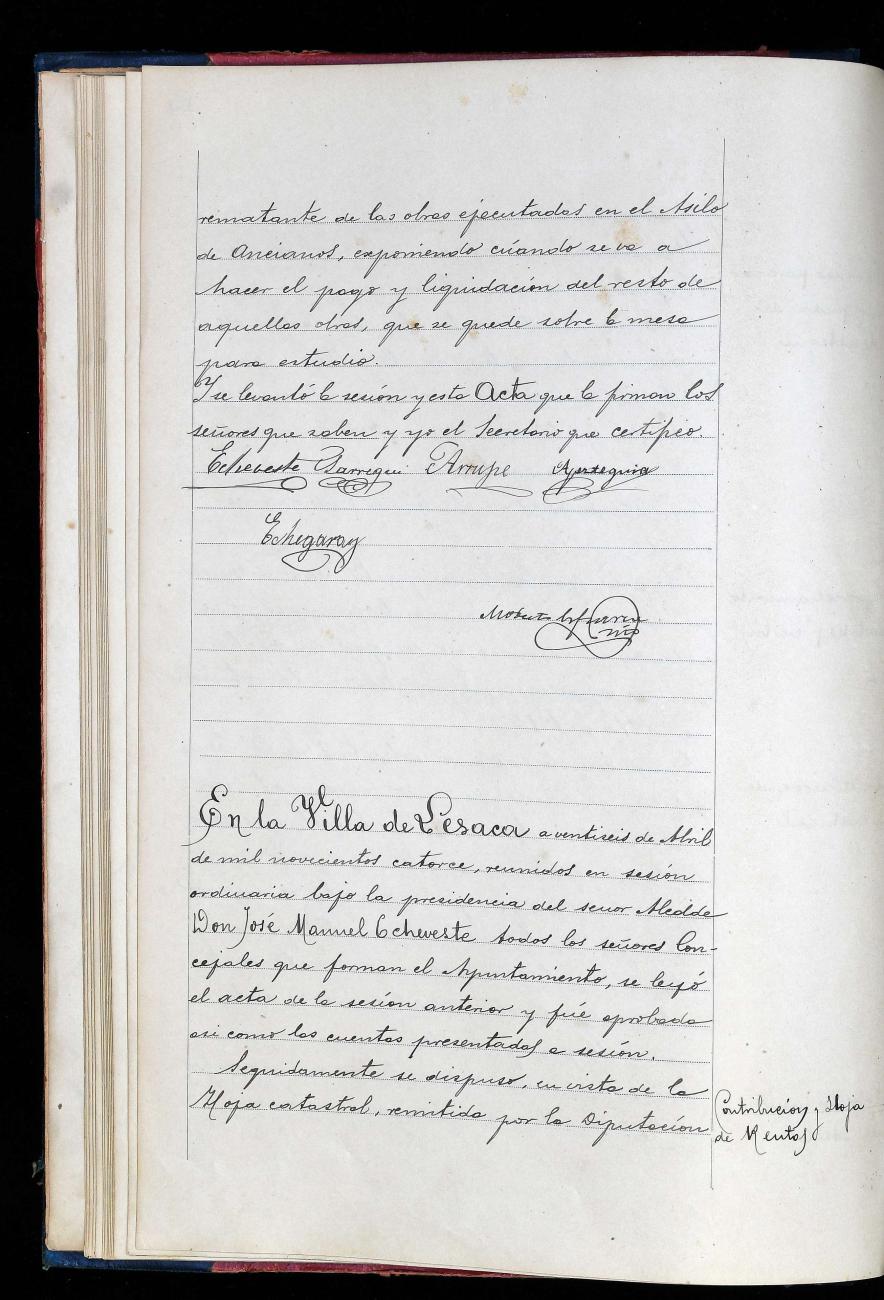 rematante de las obras ejecutadas en el Asilo
de Ancianos, exponiendo cúando se va a
hacer el pago y liquidación del resto de
aquellas obras, que se quede sobre la mesa
para estudio.
Y se levantó la sesión y esta Acta que la firman los
señores que saben y yo el Secretario que certifico.
Echeveste Garregui Arrupe
Echegaray
En la Villa de Lesaca a ventiseis de Abril
de mil novicientos catorce, reunidos en sesión
ordinaria bajo la presidencia del señor Alcalde
Don José Manuel Echeveste todos los señores Con-
cejales que forman el Ayuntamiento, se leyó
el acta de la sesión anterior y fúe aprobada
asi como las cuentas presentadas a sesión.
Seguidamente se dispuso, en vista de la
Hoja catastral, remitida por la Diputación
Contribucion y Hoja
de Rentas